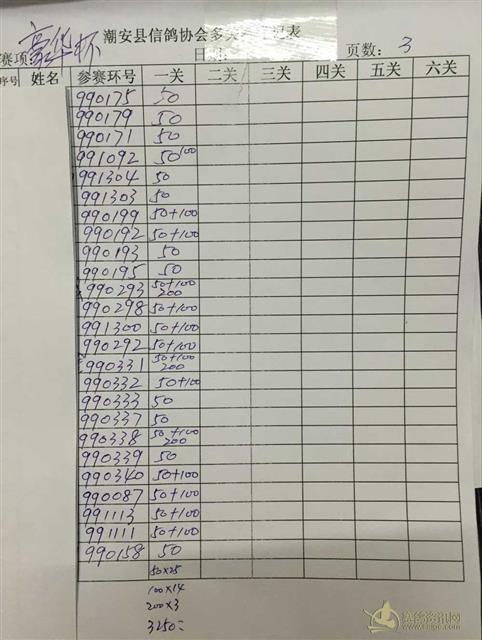 豪华杯 潮安县信鸽协会多 表
赛项 页数：3
序号 姓名 参赛环号 一关 二关 三关 四关 五关 六关
990175 50
990179 50
990171 50
991092 50 100
991304 50
991303 50
990199 50+100
990192 50+100
990193 50
990195 50
990293 50+100 200
990298 50+100
991300 50+100
990292 50+100
990331 50+100 200
990332 50+100
990333 50
990337 50
990338 50+100 200
990339 50
990340 50+100
990087 50+100
991113 50+100
991111 50+100
990158 50
50×25
100×14
200×3
3250